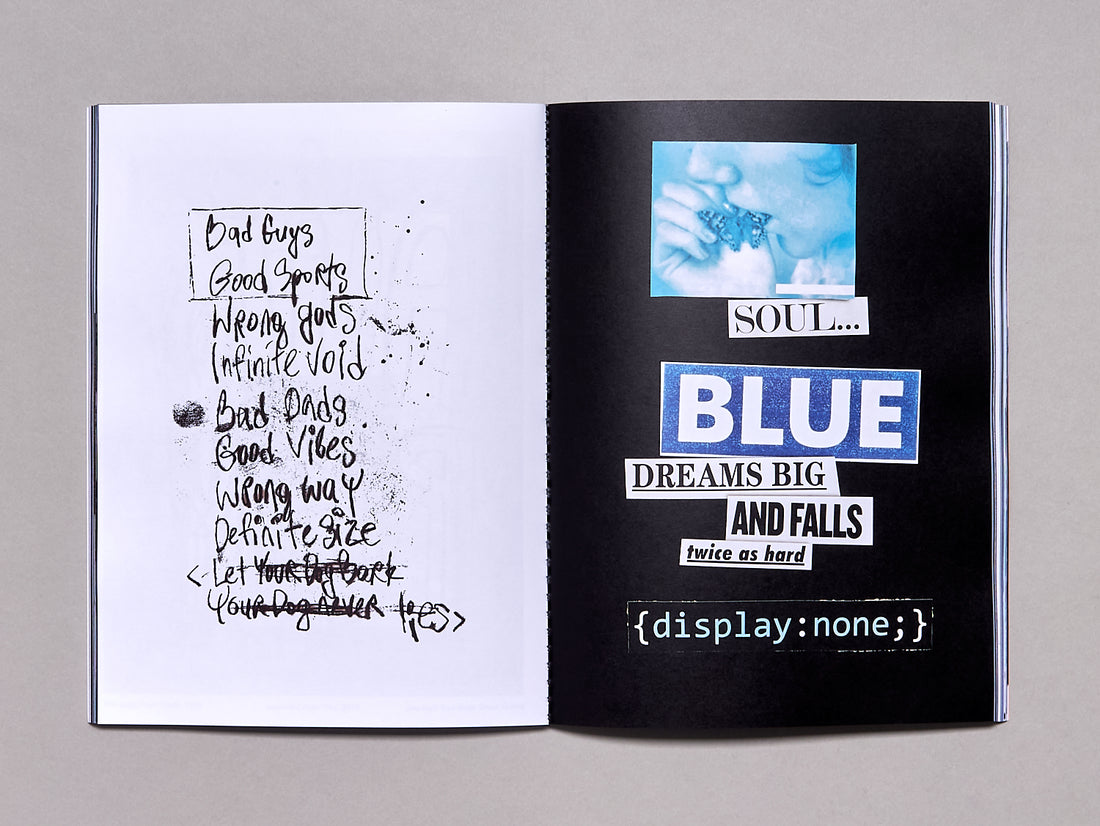 Bad Guys
Good Sports
Wrong gods
Infinite void
Bad Dads
Good Vibes
Wrong way
Definite size
< Let Your Dog Bark
Your Dog never lies>
SOUL...
BLUE
DREAMS BIG
AND FALLS
twice as hard
{display:none;}